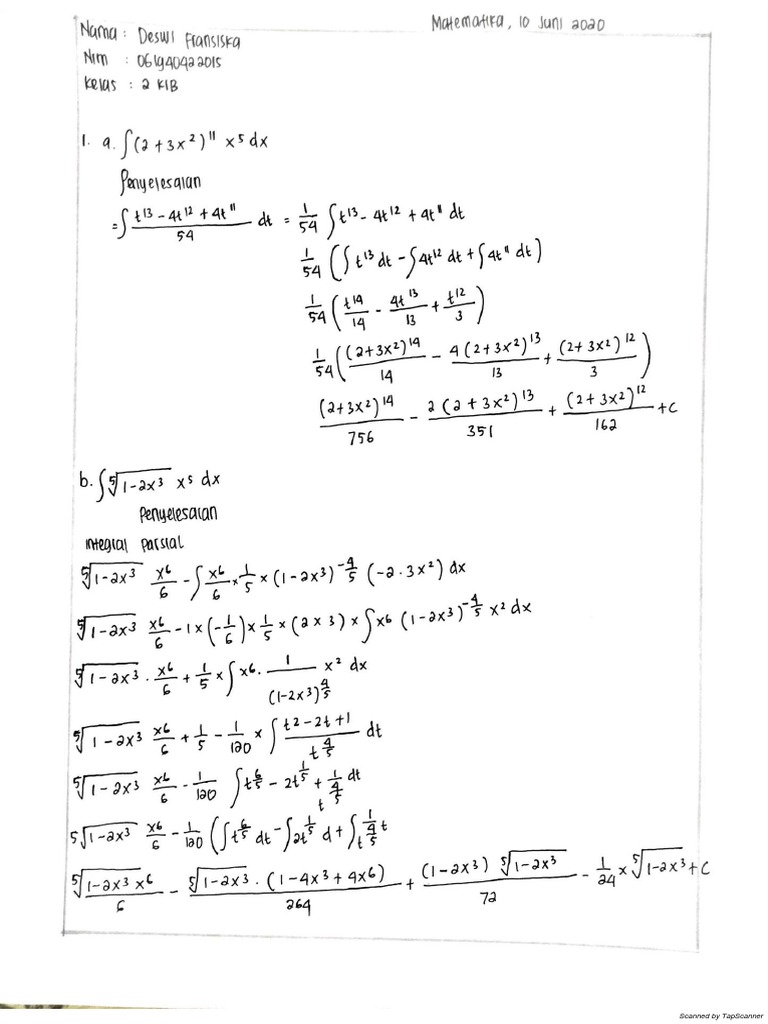 Matematika, 10 Juni 2020
Nama : Deswi Fransiska
Nim : 061940422015
Kelas : 2 KIB
1. a. ∫(2 + 3x²)¹¹ x⁵ dx
Penyelesaian
= ∫ (t¹³ - 4t¹² + 4t¹¹)/54 dt = 1/54 ∫ t¹³ - 4t¹² + 4t¹¹ dt
1/54 (∫ t¹³ dt - ∫ 4t¹² dt + ∫ 4t¹¹ dt)
1/54 (t¹⁴/14 - 4t¹³/13 + t¹²/3)
1/54 ((2+3x²)¹⁴/14 - 4(2+3x²)¹³/13 + (2+3x²)¹²/3)
(2+3x²)¹⁴/756 - 2(2+3x²)¹³/351 + (2+3x²)¹²/162 + C
b. ∫ ⁵√(1-2x³) x⁵ dx
Penyelesaian
integral parsial
⁵√(1-2x³) x⁶/6 - ∫ x⁶/6 × 1/5 × (1-2x³)^(-4/5) (-2·3x²) dx
⁵√(1-2x³) x⁶/6 - 1 × (-1/6) × 1/5 × (2×3) × ∫ x⁶ (1-2x³)^(-4/5) x² dx
⁵√(1-2x³) · x⁶/6 + 1/5 × ∫ x⁶ · 1/(1-2x³)^(4/5) x² dx
⁵√(1-2x³) x⁶/6 + 1/5 - 1/120 × ∫ (t²-2t+1)/t^(4/5) dt
⁵√(1-2x³) x⁶/6 - 1/120 ∫ t^(6/5) - 2t^(1/5) + 1/t^(4/5) dt
5√(1-2x³) x⁶/6 - 1/120 (∫ t^(6/5) dt - ∫ 2t^(1/5) d + ∫ 1/t^(4/5) t
⁵√(1-2x³) x⁶/6 - ⁵√(1-2x³) · (1-4x³+4x⁶)/264 + (1-2x³) ⁵√(1-2x³)/72 - 1/24 × ⁵√(1-2x³) + C
Scanned by TapScanner